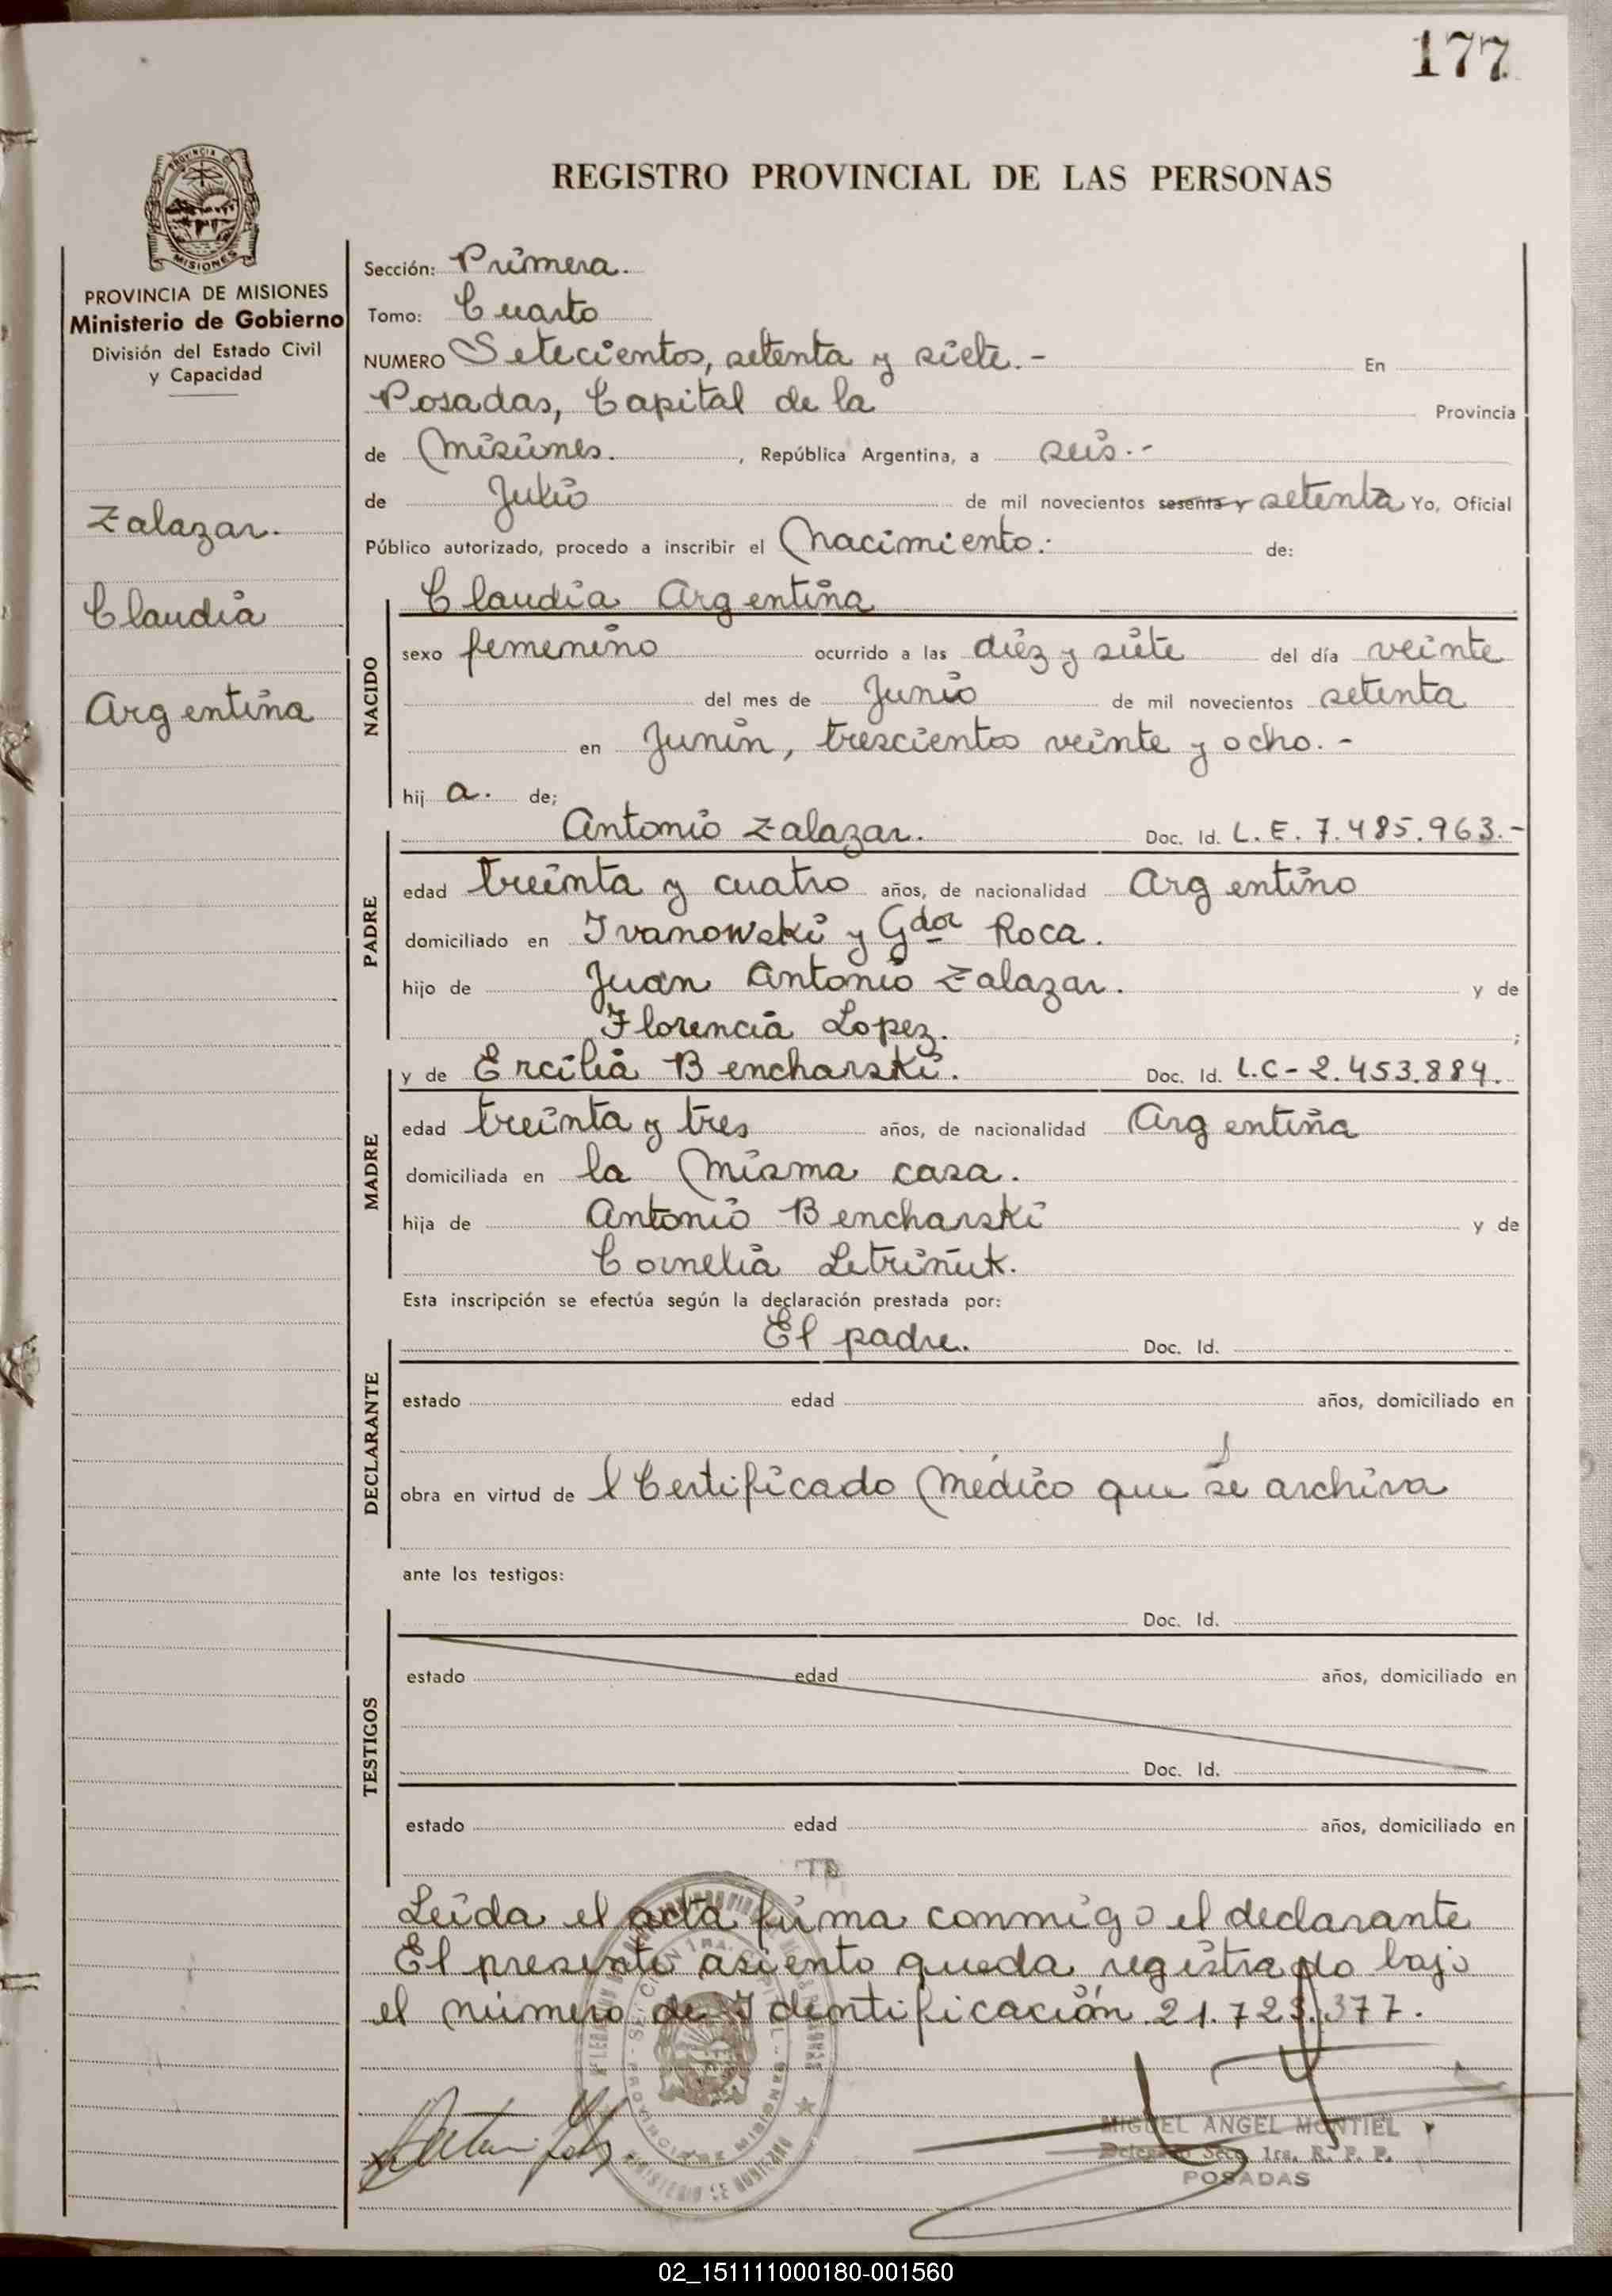 177
REGISTRO PROVINCIAL DE LAS PERSONAS
PROVINCIA DE
MISIONES
PROVINCIA DE MISIONES
Ministerio de Gobierno
División del Estado Civil
y Capacidad
Zalazar.
Claudia
Argentina
Sección: Primera.
Tomo: Cuarto
NUMERO Setecientos, setenta y siete.- En
Posadas, Capital de la Provincia
de Misiones. , República Argentina, a seis.-
de Julio de mil novecientos sesenta y setenta Yo, Oficial
Público autorizado, procedo a inscribir el Nacimiento: de:
Claudia Argentina
NACIDO
sexo femenino ocurrido a las diéz y siete del día veinte
del mes de Junio de mil novecientos setenta
en Junín, trescientos veinte y ocho.-
hij a. de;
PADRE
Antonio Zalazar. Doc. Id. L.E. 7.485.963.-
edad treinta y cuatro años, de nacionalidad Argentino
domiciliado en Ivanowski y Gdor Roca.
hijo de Juan Antonio Zalazar. y de
Florencia Lopez. ;
MADRE
y de Ercilia Bencharski. Doc. Id. L.C-2.453.884.
edad treinta y tres años, de nacionalidad Argentina
domiciliada en la misma casa.
hija de Antonio Bencharski y de
Cornelia Letriniuk.
Esta inscripción se efectúa según la declaración prestada por:
DECLARANTE
El padre. Doc. Id.
estado edad años, domiciliado en
obra en virtud de l Certificado Médico que se archiva
ante los testigos:
TESTIGOS
Doc. Id.
estado edad años, domiciliado en
Doc. Id.
estado edad años, domiciliado en
Leida el acta firma conmigo el declarante
El presente asiento queda registrado bajo
el número de Identificación 21.723.377.
MIGUEL ANGEL MONTIEL
Delegado Secc. 1ra. R. P. P.
POSADAS
02_151111000180-001560